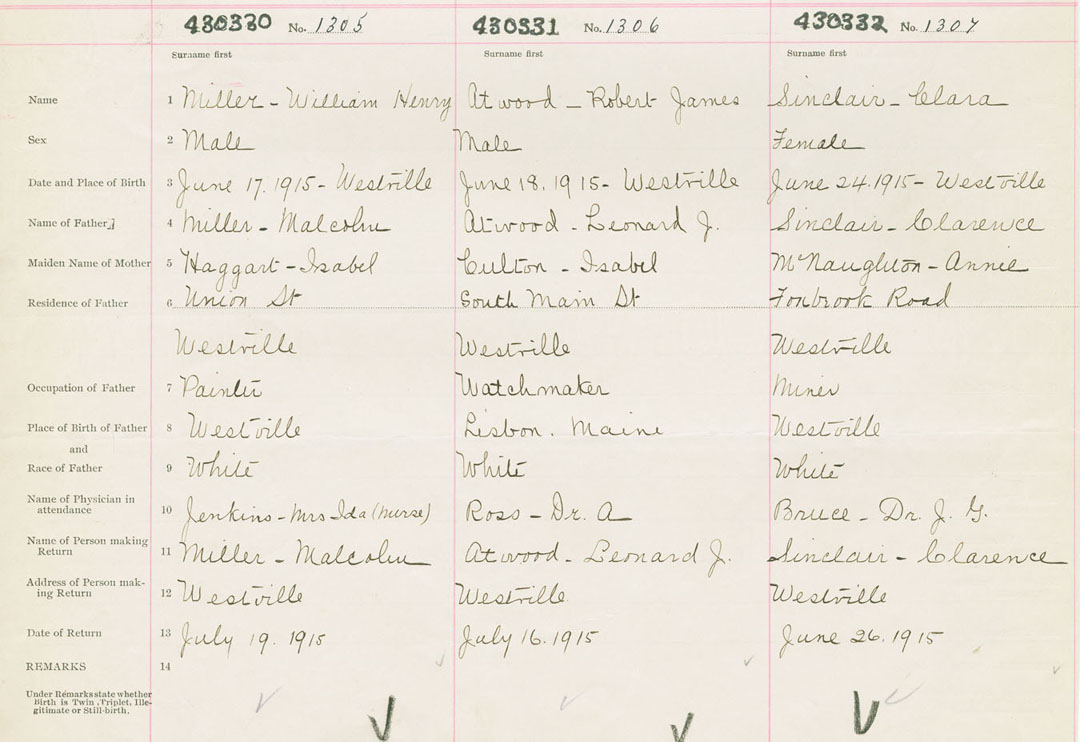 430330 No. 1305 430331 No. 1306 430332 No. 1307
Surname first Surname first Surname first
Name 1 Miller - William Henry Atwood - Robert James Sinclair - Clara
Sex 2 Male Male Female
Date and Place of Birth 3 June 17. 1915 - Westville June 18. 1915 - Westville June 24. 1915 - Westville
Name of Father 4 Miller - Malcolm Atwood - Leonard J. Sinclair - Clarence
Maiden Name of Mother 5 Haggart - Isabel Culton - Isabel McNaughton - Annie
Residence of Father 6 Union St South Main St Foxbrook Road
Westville Westville Westville
Occupation of Father 7 Painter Watchmaker Miner
Place of Birth of Father 8 Westville Lisbon. Maine Westville
and
Race of Father 9 White White White
Name of Physician in
attendance 10 Jenkins - Mrs Ida (nurse) Ross - Dr. A Bruce - Dr. J. G.
Name of Person making
Return 11 Miller - Malcolm Atwood - Leonard J. Sinclair - Clarence
Address of Person mak-
ing Return 12 Westville Westville Westville
Date of Return 13 July 19. 1915 July 16. 1915 June 26. 1915
REMARKS 14
Under Remarks state whether
Birth is Twin, Triplet, Ille-
gitimate or Still-birth.